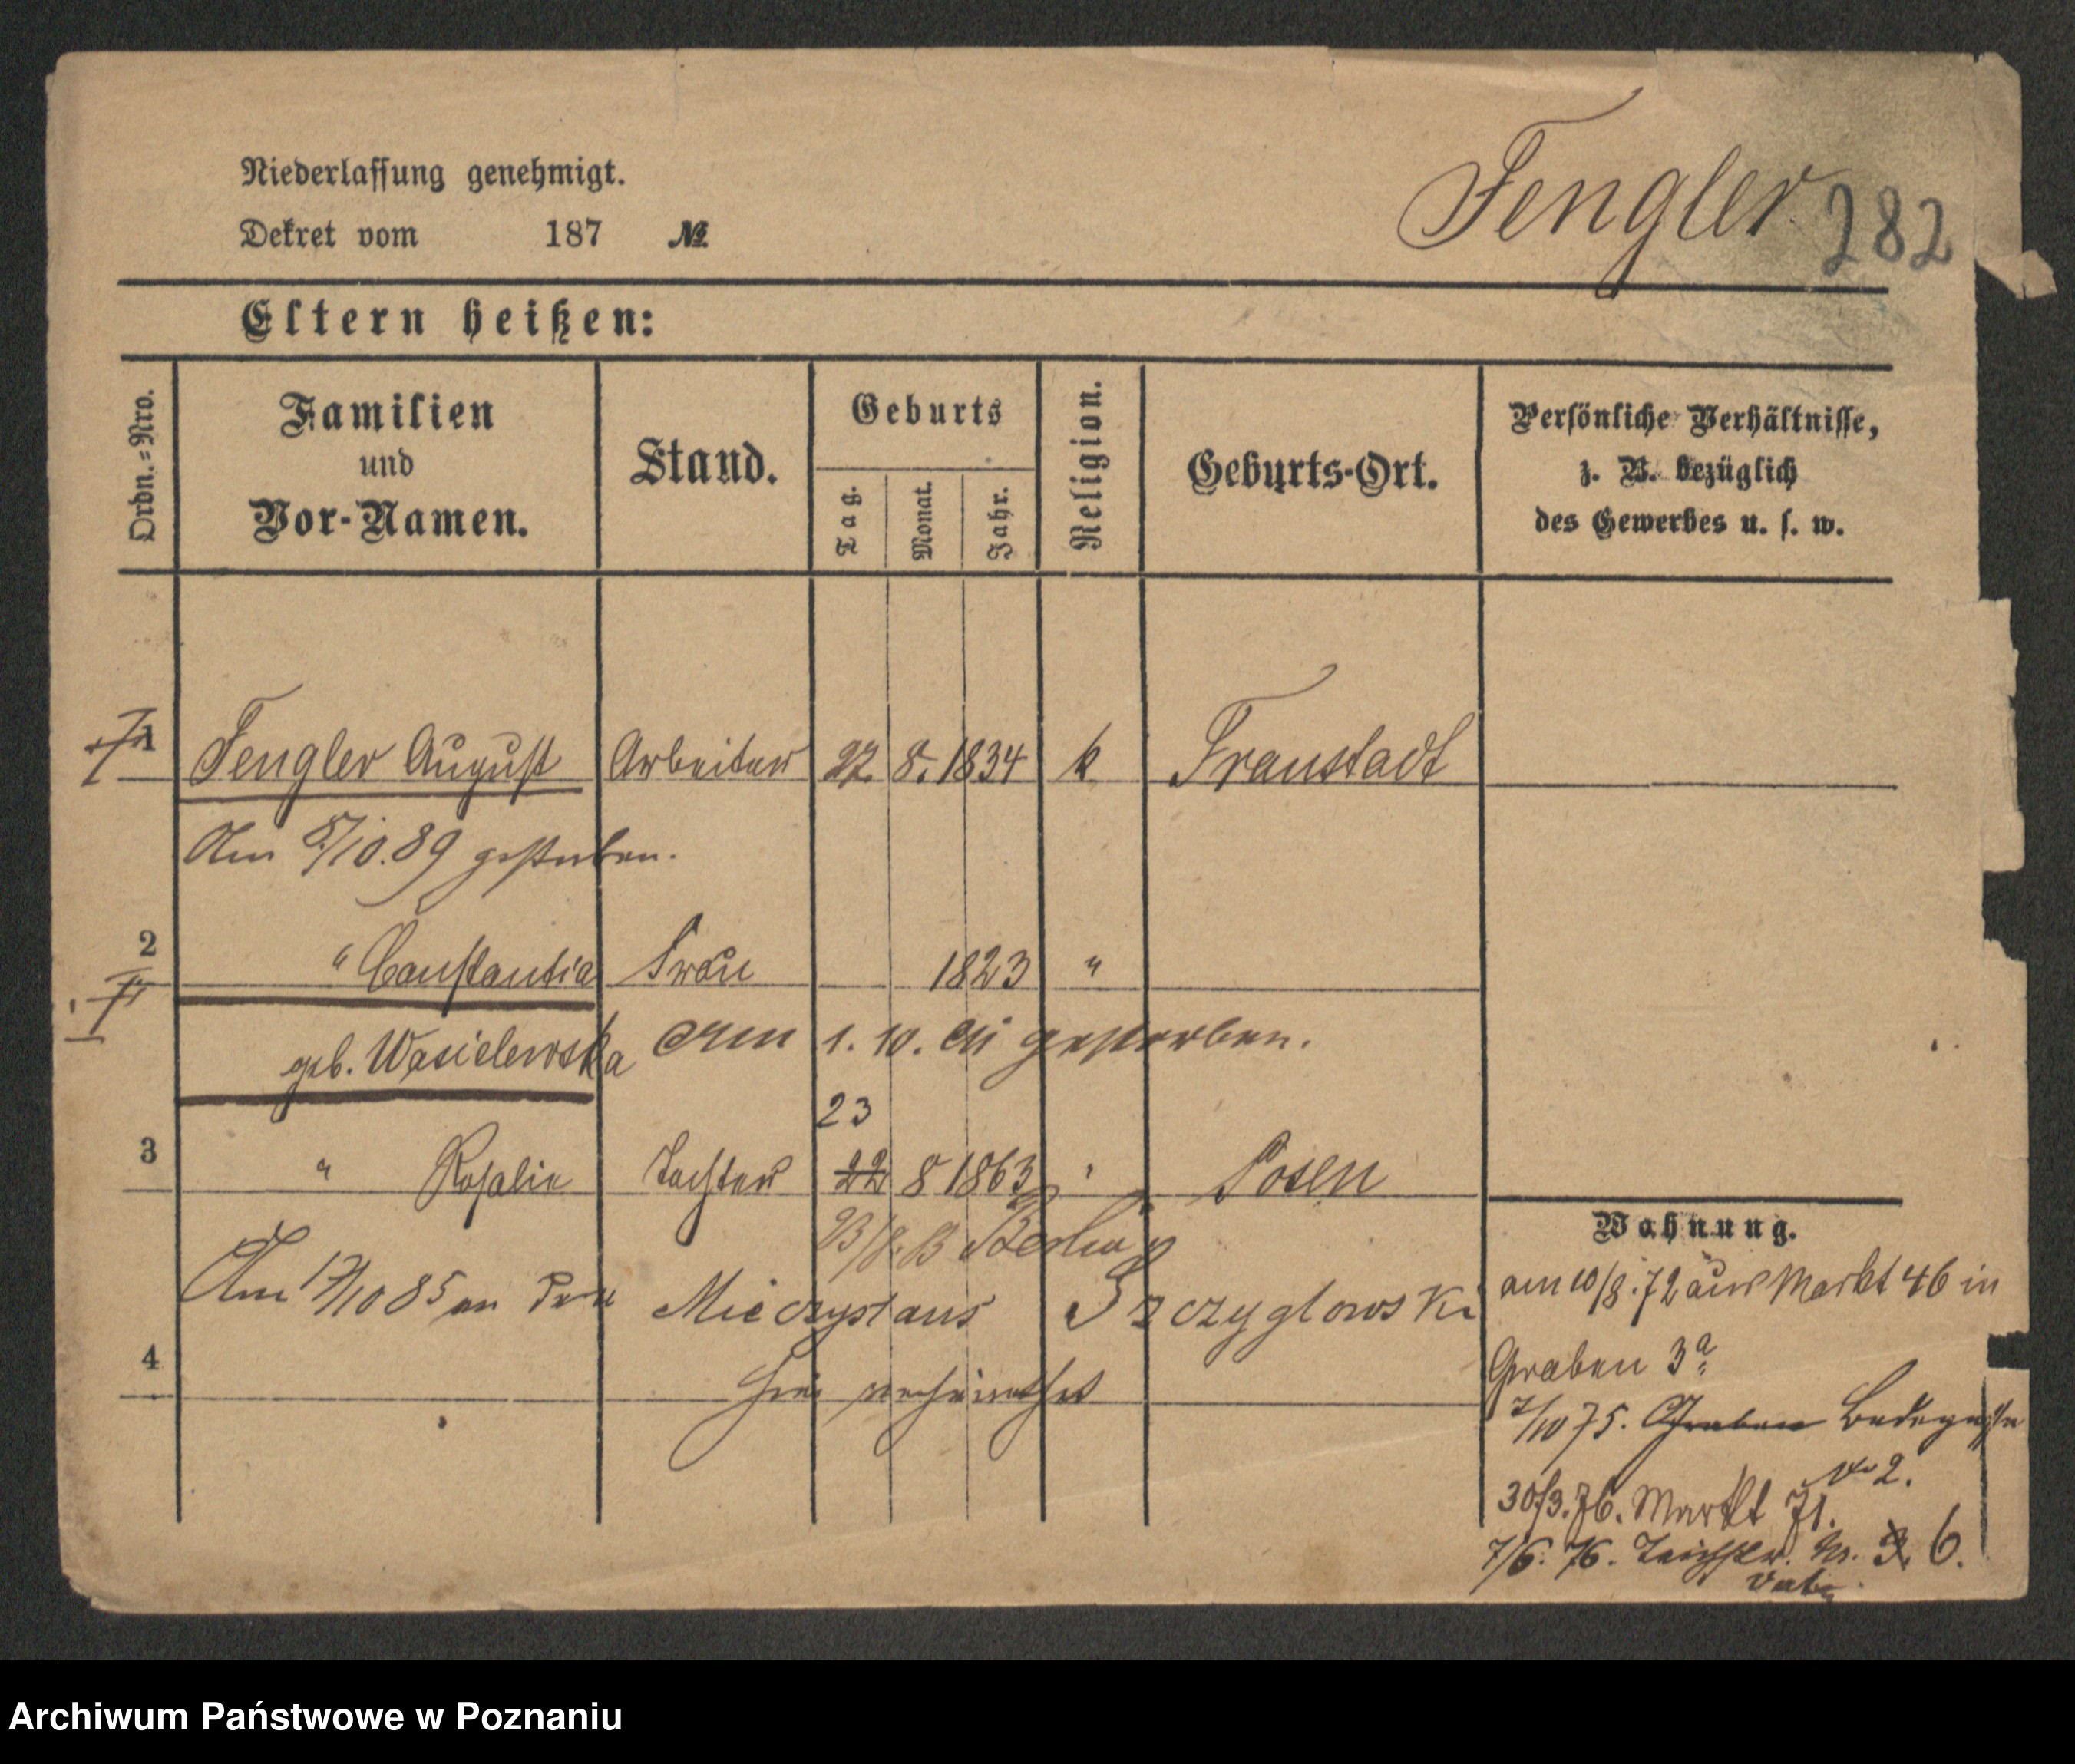 Niederlassung genehmigt.
Fengler 282
Dekret vom 187 №
Eltern heißen:
Ordn.=Nro.
Familien und Vor-Namen.
Stand.
Geburts
Tag.
Monat.
Jahr.
Religion.
Geburts-Ort.
Persönliche Verhältnisse,
z. B. bezüglich
des Gewerbes u. s. w.
1 Fengler August Arbeiter 27. 8. 1834 k Fraustadt
Am 5/10.89 gestorben.
2 " Constantia Frau 1823 "
geb. Wasielewska Am 1. 10. gestorben.
23
3 " Rosalie Tochter 22 8 1863 " Posen
Berlin
Am 17/10 85 an den Mieczyslaus Szczyglowski
4 hier verheirathet
Wohnung.
am 10/8.72 aus Markt 46 in
Graben 3a.
2/10 75. Graben
No 2.
30/3.76. Markt 71.
7/6. 76. Teichstr. Nr. 3. 6.
Archiwum Państwowe w Poznaniu